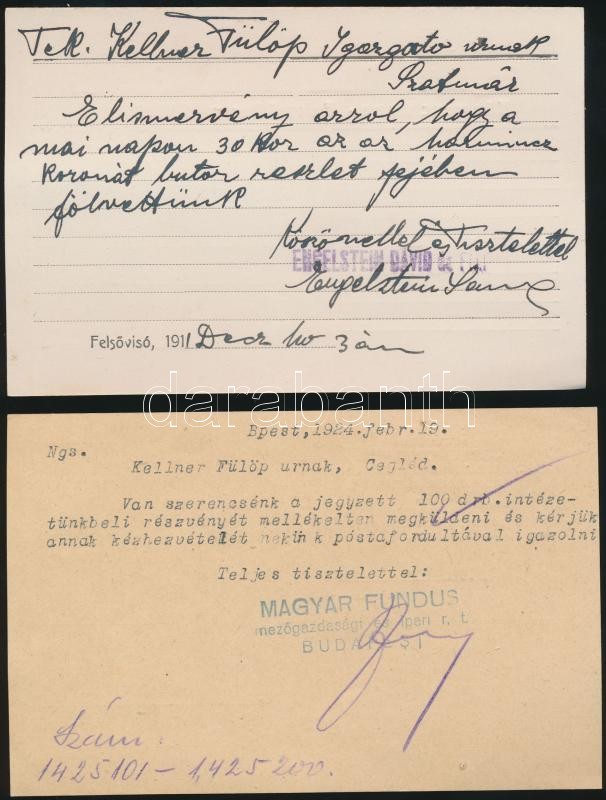 Tek. Kellner Fülöp Igazgató urnak
Szatmár
Elismervény arrol, hogy a
mai napon 30 Kor az az harmincz
Koronát butor reszlet fejében
fölvettünk
Köszönettel és Tisztelettel
ENGELSTEIN DÁVID és FIAI
Engelstein
Felsővisó, 1911 Decz hó 3 án
darabanth
Bpest, 1924. febr. 19.
Ngs.
Kellner Fülöp urnak, Cegléd.
Van szerencsénk a jegyzett 100 drb. intéze-
tünkbeli részvényét mellékelten megküldeni és kérjük
annak kézhezvételét nekünk póstafordultával igazolni
Teljes tisztelettel:
MAGYAR FUNDUS
mezőgazdasági és ipari r. t.
BUDAPEST
Szám:
1425101 – 1,425200.